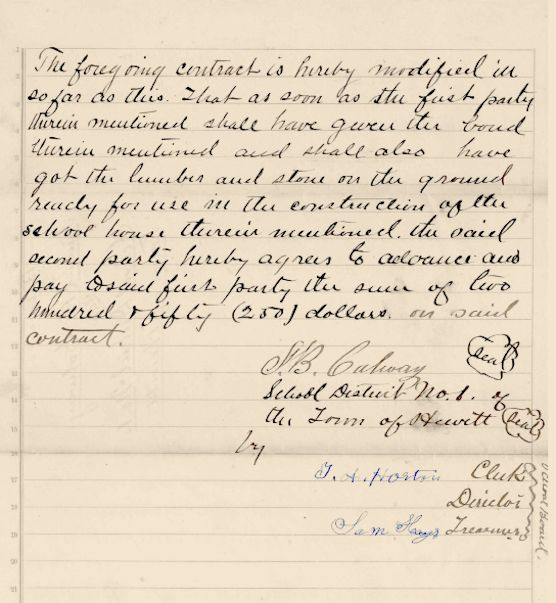 The foregoing contract is hereby modified in
so far as this. That as soon as the first party
therein mentioned shall have given the bond
therein mentioned and shall also have
got the lumber and stone on the ground
ready for use in the construction of the
school house therein mentioned. the said
second party hereby agrees to advance and
pay to said first party the sum of two
hundred & fifty (250) dollars. on said
contract.
S.B. Calway
Seal
School District No. 1. of
the Town of Hewitt
Seal
by
Horton Clerk
Director
Sam Treasurer
School Board.